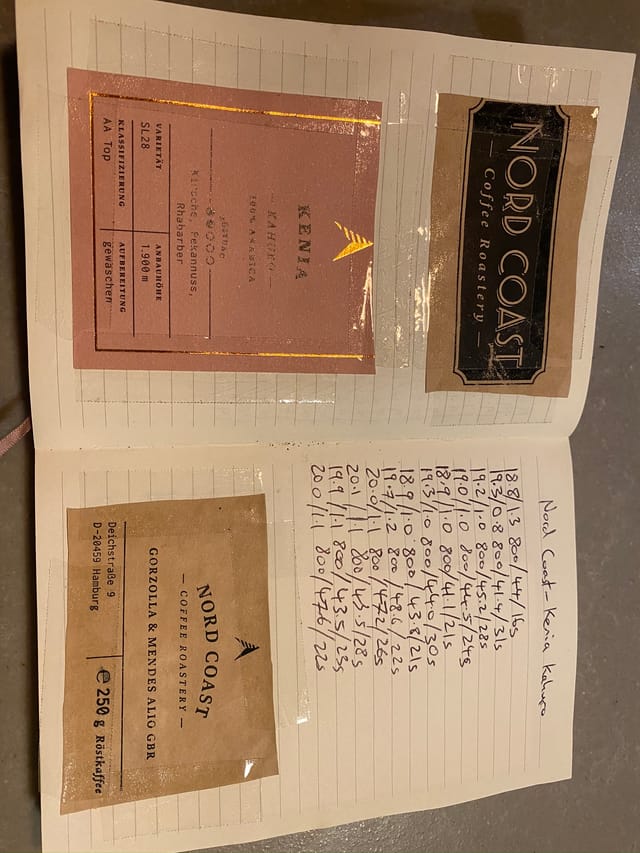 NORD COAST
— Coffee Roastery —
KENIA
— KAHURO —
100% ARABICA
Kirsche, Pekannuss,
Rhabarber
VARIETÄT ANBAUHÖHE
SL28 1.900 m
KLASSIFIZIERUNG AUFBEREITUNG
AA Top gewaschen
Nord Coast - Kenia Kahuro
18.8/1.3 800/44/16s
19.3/0.8 800/41.4/31s
19.2/1.0 800/45.2/28s
19.0/1.0 800/44.5/24s
18.9/1.0 800/41.1/21s
19.3/1.0 800/44.0/30s
18.9/1.0 800/43.8/21s
19.7/1.2 800/48.6/22s
20.0/1.1 800/47.2/26s
20.1/1.1 800/43.5/28s
19.9/1.1 800/43.5/23s
20.0/1.1 800/47.6/22s
NORD COAST
— COFFEE ROASTERY —
GORZOLLA & MENDES ALIO GBR
Deichstraße 9
D-20459 Hamburg
℮ 250 g Röstkaffee